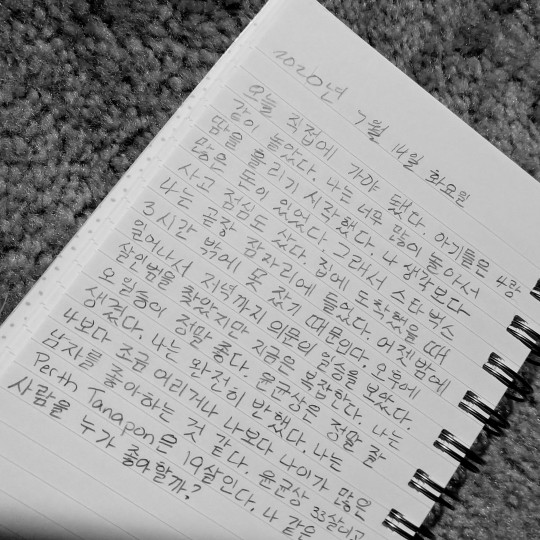 2020년 7월 14일 화요일
오늘 직접에 가야 됐다. 아기들은 나랑
같이 놀았다. 나는 너무 많이 놀아서
땀을 흘리기 시작했다. 나 생각보다
많은 돈이 있었다. 그래서 스타벅스
사고 점심도 샀다. 집에 도착했을 때
나는 곧장 잠자리에 들었다. 어젯밤에
3시간 밖에 못 잤기 때문이다. 오후에
일어나서 저녁까지 의문의 일승를 보았다.
살인범을 찾았지만 지금은 복잡한다. 나는
오일승이 정말 좋다. 윤균상은 정말 잘
생겼다. 나는 완전히 반했다. 나는
나보다 조금 어리거나 나보다 나이가 많은
남자를 좋아하는 것 같다. 윤균상 33살이고
Perth Tanapon은 19살인다. 나 같은
사람을 누가 좋아할까?